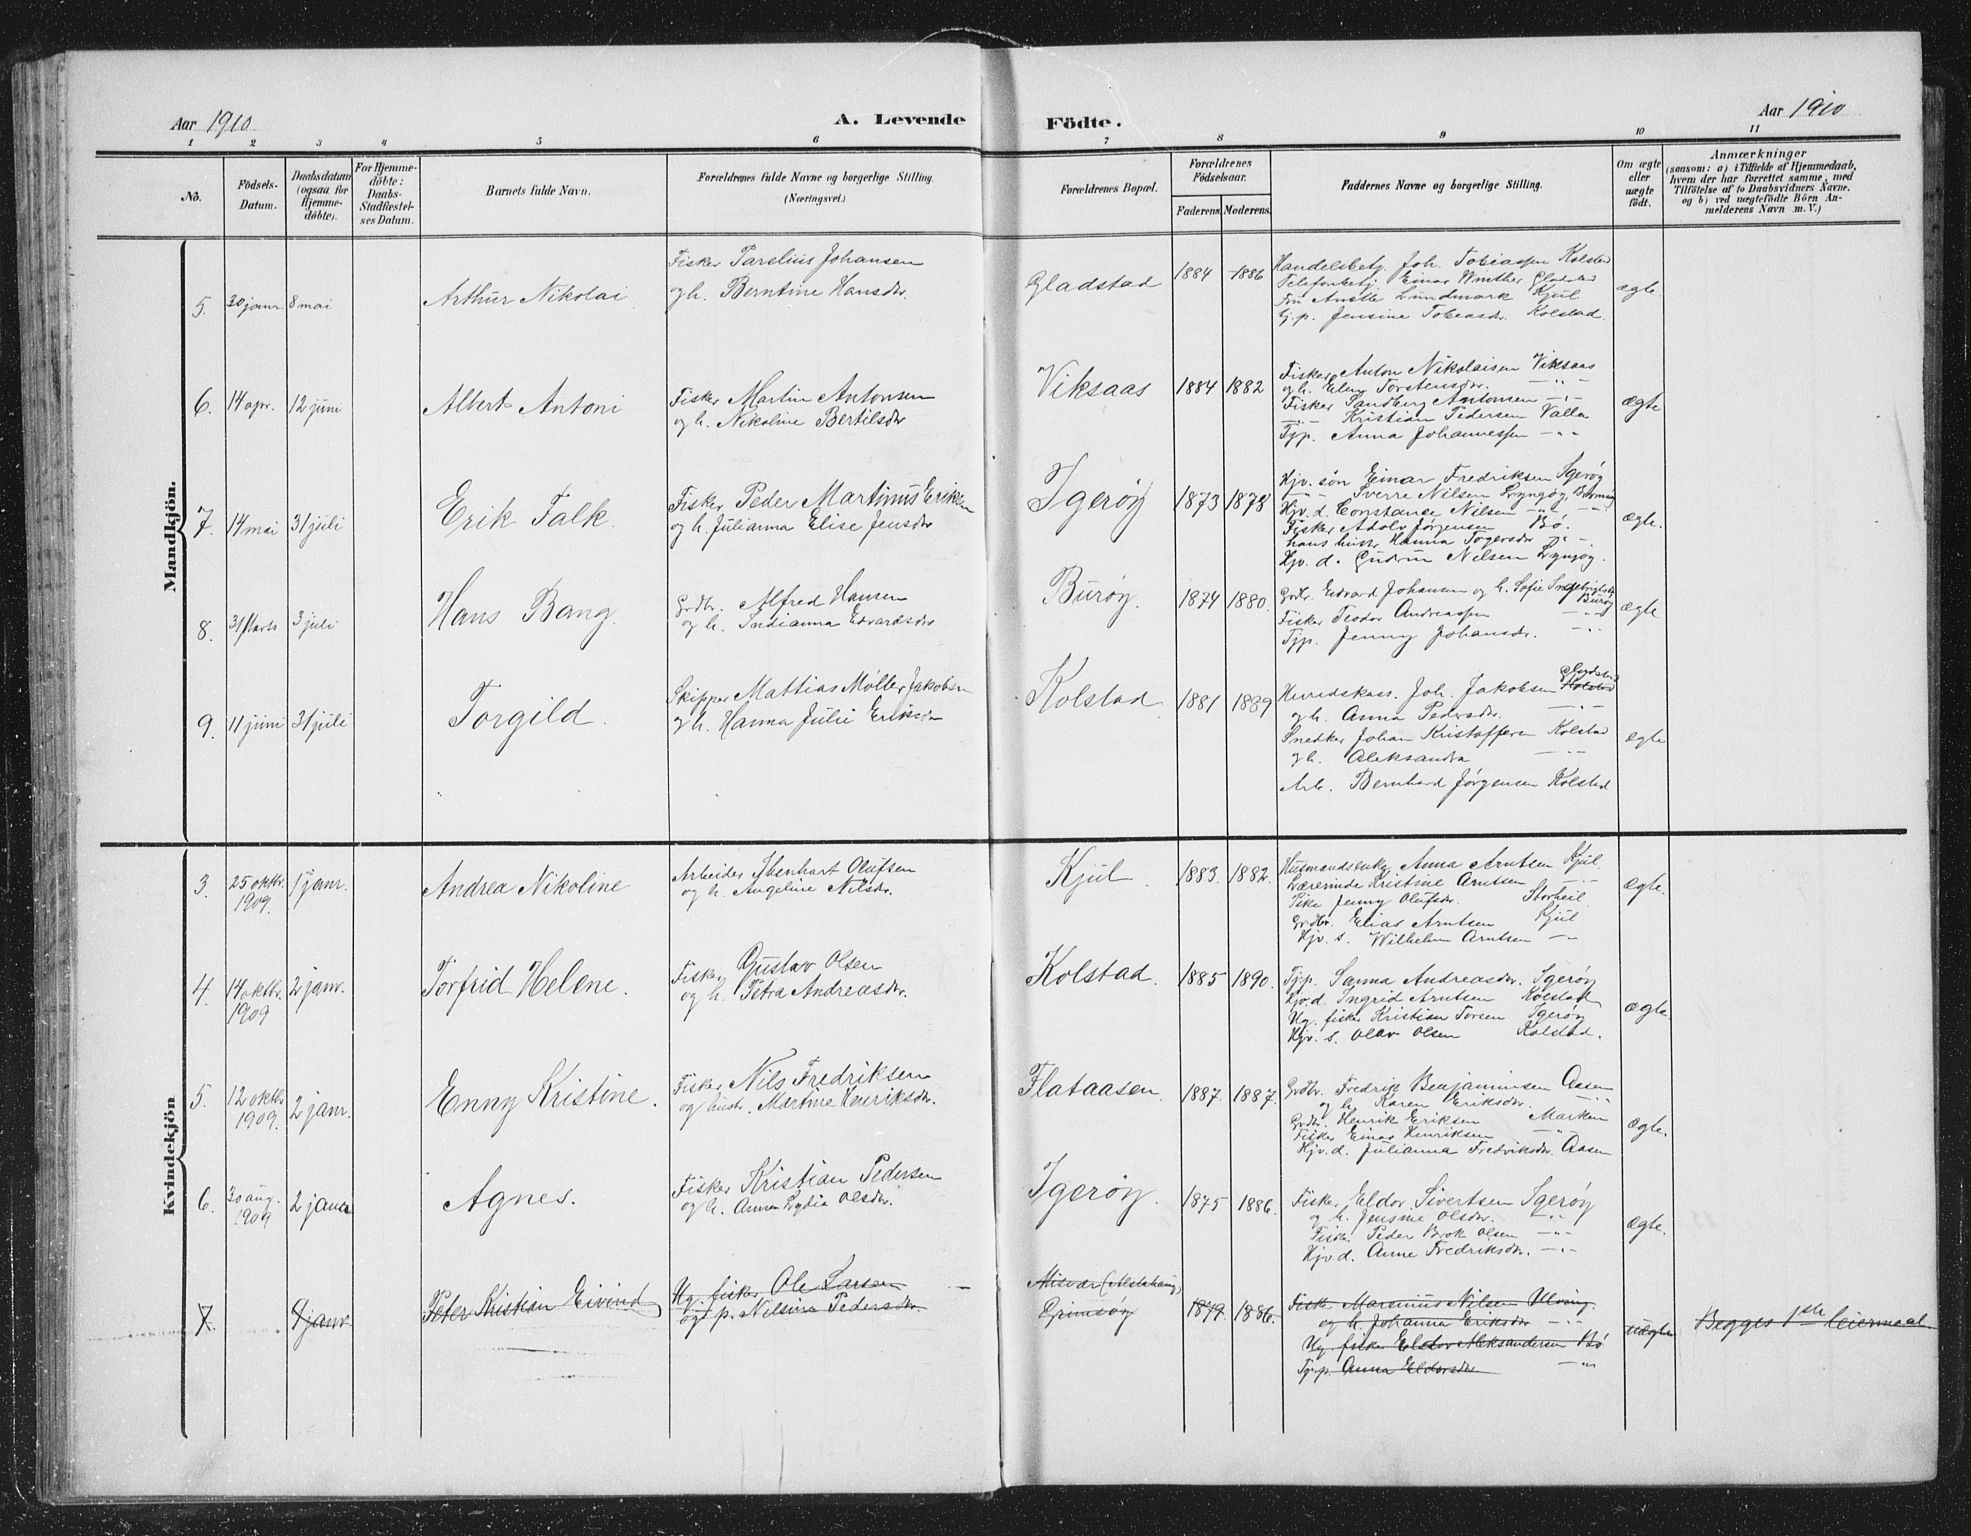 Aar 1910.
A. Levende
Födte.
Aar 1910
1 2 3 4 5 6 7 8 9 10 11
Nô.
Födsels-
Datum.
Daabsdatum
(ogsaa for
Hjemme-
döbte).
For Hjemme-
döbte:
Daabs-
Stadfæstel-
ses Datum.
Barnets fulde Navn.
Forældrenes fulde Navne og borgerlige Stilling.
(Næringsvei.)
Forældrenes Bopæl.
Forældrenes
Födselsaar.
Faderens. Moderens.
Faddernes Navne og borgerlige Stilling.
Om ægte
eller
uægte
födt.
Anmærkninger
(saasom: a) i Tilfælde af Hjemmedaab,
hvem der har forrettet samme, med
Tilföielse af to Daabsvidners Navne.
og b) ved uægtefödte Börn An-
melderens Navn m. V.)
Mandkjön.
5. 30 janr. 8 mai
Arthur Nikolai
Fisker Parelius Johansen
og h. Berntine Hansdr.
Gladstad
1884 1886
Handelsbetj. Joh. Tobiassen Kolstad
Telefonbetj. Einar Winther Gladstad
Fru Anette Lundmark Kjul
Tj. p. Jensine Tobiasdr. Kolstad.
ægte.
6. 14 apr. 12 juni
Albert Antoni
Fisker Martin Antonsen
og h. Nikoline Bertilsdr
Viksaas
1884 1882
Fisker Anton Nikolaisen Viksaas
og h. Elen Torstensdr. — " —
Fisker Sandberg Antonsen — " —
— " — Kristian Pedersen Valla
Tjp. Anna Johannessen — " —
ægte
7. 14 mai 31 juli
Erik Falk.
Fisker Peder Martinus Eriksen
og h. Julianna Elise Jensdr
Igerøy
1873 1878
Hjv. søn Einar Fredriksen Igerøy
— " — Sverre Nilsen Lyngøy,
Hjv. d. Constance Nilsen — " —
Fisker Adolv Jørgensen Bø.
hans hustr. Hanna Togersdr — " —
Hjv. d. Gudrun Nilsen Lyngøy.
ægte.
8. 31 Marts 3 juli
Hans Bang.
Grdbr. Alfred Hansen
og h. Indianna Edvardsdr
Burøy.
1874 1880.
Grdbr. Edvard Johansen og h. Sofie Ingebrigtsdr.
Burøy
Fisker Teodor Andreassen — " —
Tjp. Jenny Johansdr. — " —
ægte
9. 11 juni 31 juli
Torgild.
Skipper Mattias Møller Jakobsen
og h. Hanna Julie Eriksdr
Kolstad
1881 1889
Herredskass. Joh. Jakobsen Kolstad
og h. Anna Pedersdr. — " —
Snedker Johan Kristoffersen Kolstad
og h. Aleksandra — " —
Arb. Bernhard Jørgensen Kolstad
ægte
Kvindekjön
3. 25 oktbr. 1909. 1 janr.
Andrea Nikoline
Arbeider Ibenhart Olufsen
og h. Angeline Nilsdr.
Kjul.
1883. 1882.
Husmandsenke Anna Arntsen Kjul.
Lærerinde Kristine Arntsen — " —
Pike Jenny Olufsdr. Storheil.
Grdbr. Elias Arntsen Kjul
Hjv. s. Wilhelm Arntsen — " —
ægte.
4. 14 oktbr. 1909 2 janr.
Torfrid Helene.
Fisker Gustav Olsen
og h. Petra Andreasdr.
Kolstad.
1885 1890.
Tjp. Sanna Andreasdr. Igerøy
Hjv. d. Ingrid Arntsen Kolstad
Ug. fisker Kristian Torsen Igerøy
Hjv. s. Olav Olsen Kolstad.
ægte
5. 12 oktbr 1909. 2 janr.
Enny Kristine.
Fisker Nils Fredriksen
og hustr. Martine Henriksdr.
Flataasen
1887. 1887.
Grdbr. Fredrik Benjaminsen Aasen
og h. Karen Eriksdr. — " —
Grdbr. Henrik Eriksen Marken
Fisker Einar Henriksen — " —
Hjv. d. Julianna Fredriksdr. Aasen
ægte.
6. 30 aug. 1909 2 janr
Agnes.
Fisker Kristian Pedersen
og h. Anna Lydia Olsdr.
Igerøy.
1875 1886.
Fisker Eldor Sivertsen Igerøy
og h. Jensine Olsdr. — " —
Fisker Peder Brok Olsen — " —
Hjv. d. Anne Fredriksdr. — " —
ægte.
7. 9 janr.
Peter Kristian Eivind
Ug. fisker Ole Larsen
og p. Nilsine Pedersdr.
Misvær (Alstahaug)
Grimsøy
1879. 1886.
Fisk. Marenius Nilsen Ulving.
og h. Johanna Eriksdr — " —
Ug. fisker Eldor Aleksandersen Bø
Tjp. Anna Eldorsdr — " —
uægte
Begges 1ste leiermaal.